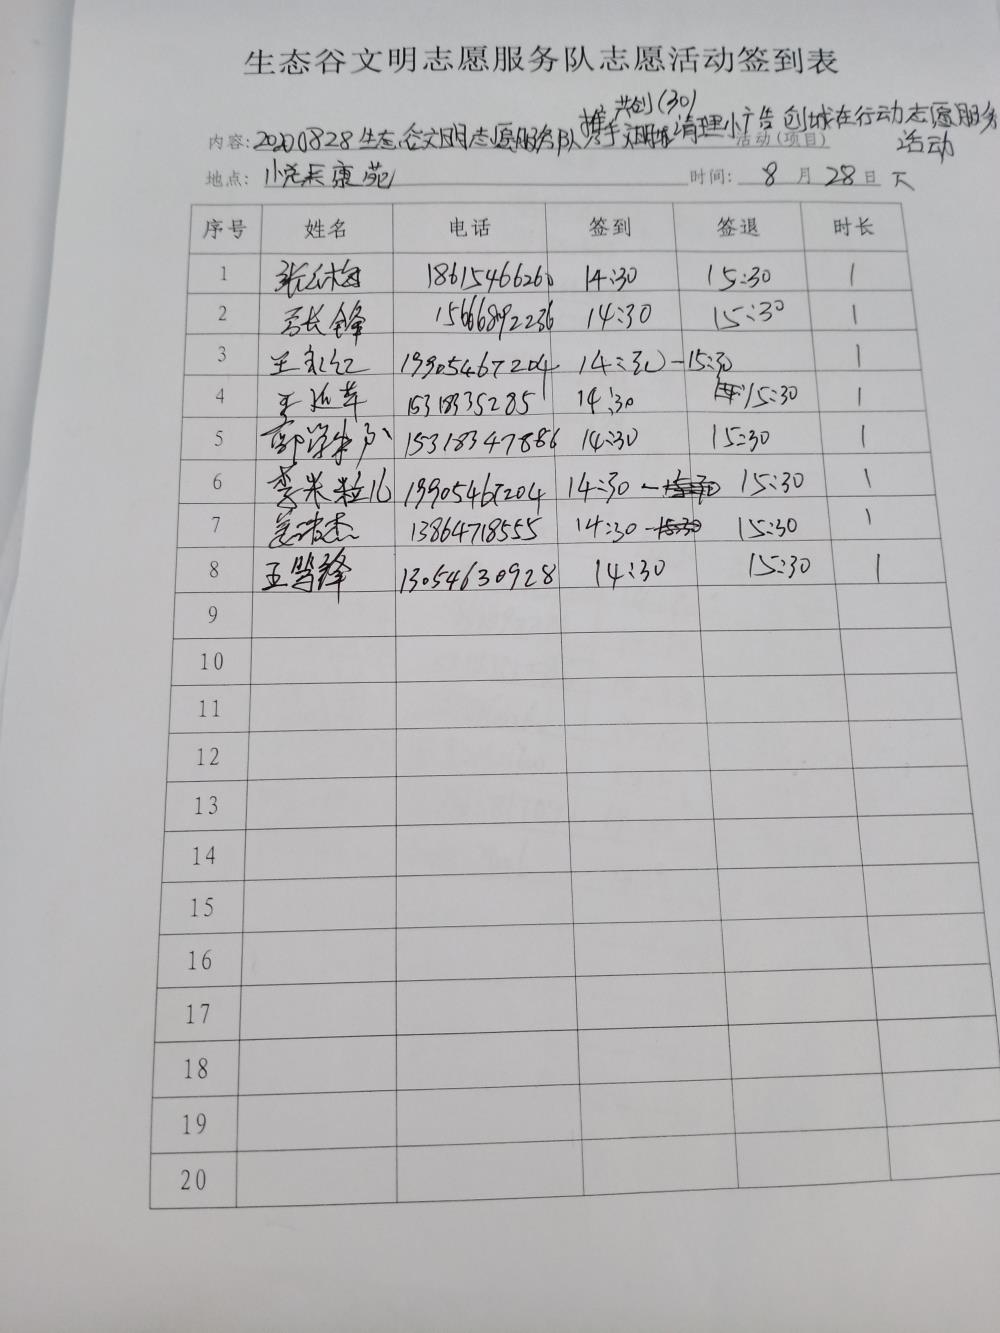 生态谷文明志愿服务队志愿活动签到表
共创(30)
内容: 20200828生态谷文明志愿服务队携手文明 清理小广告 创城在行动志愿服务
活动(项目) 活动
地点: 康苑 时间: 8 月 28 日 下
序号 姓名 电话 签到 签退 时长
1 18615466260 14:30 15:30 1
2 长锋 15666892236 14:30 15:30 1
3 王 红 19905467204 14:30-15:30 1
4 王 15318335285 14:30 15:30 1
5 15318347886 14:30 15:30 1
6 李米粒儿 19905467204 14:30 - 15:30 1
7 姜波杰 13864718555 14:30 - 15:30 1
8 王 锋 13054630928 14:30 15:30 1
9
10
11
12
13
14
15
16
17
18
19
20